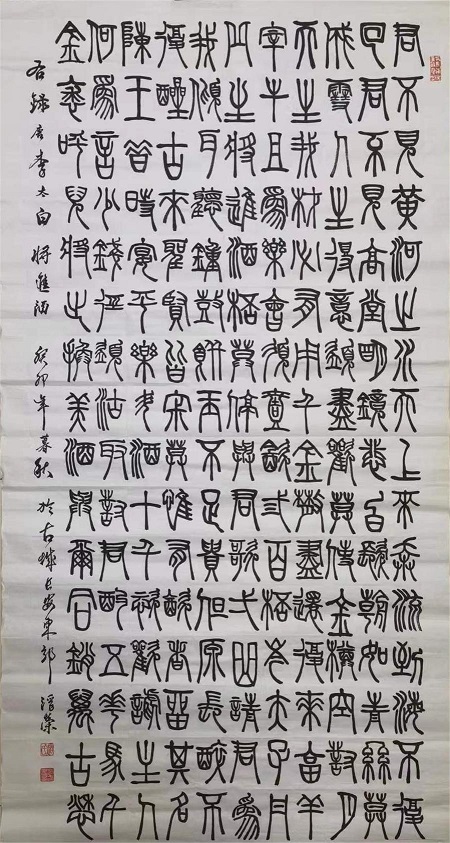 君不見黃河之水天上來奔流到海不復
回君不見高堂明鏡悲白髮朝如青絲莫
成雪人生得意須盡歡莫使金樽空對月
天生我材必有用千金散盡還復來烹羊
宰牛且為樂會須壹飲弎百杯岑夫子丹
丘生將進酒杯莫停與君歌弌曲請君為
我傾耳聽鐘鼓饌玉不足貴但原長醉不
復醒古來聖賢皆寂莫惟有飲者留其名
陳王昔時宴平樂斗酒十千恣歡謔主人
何為言少錢徑須沽取對君酌五花馬千
金裘呼兒將出換美酒與爾同銷萬古愁
右錄唐李太白將進酒 癸卯年暮秋於古城長安東郭